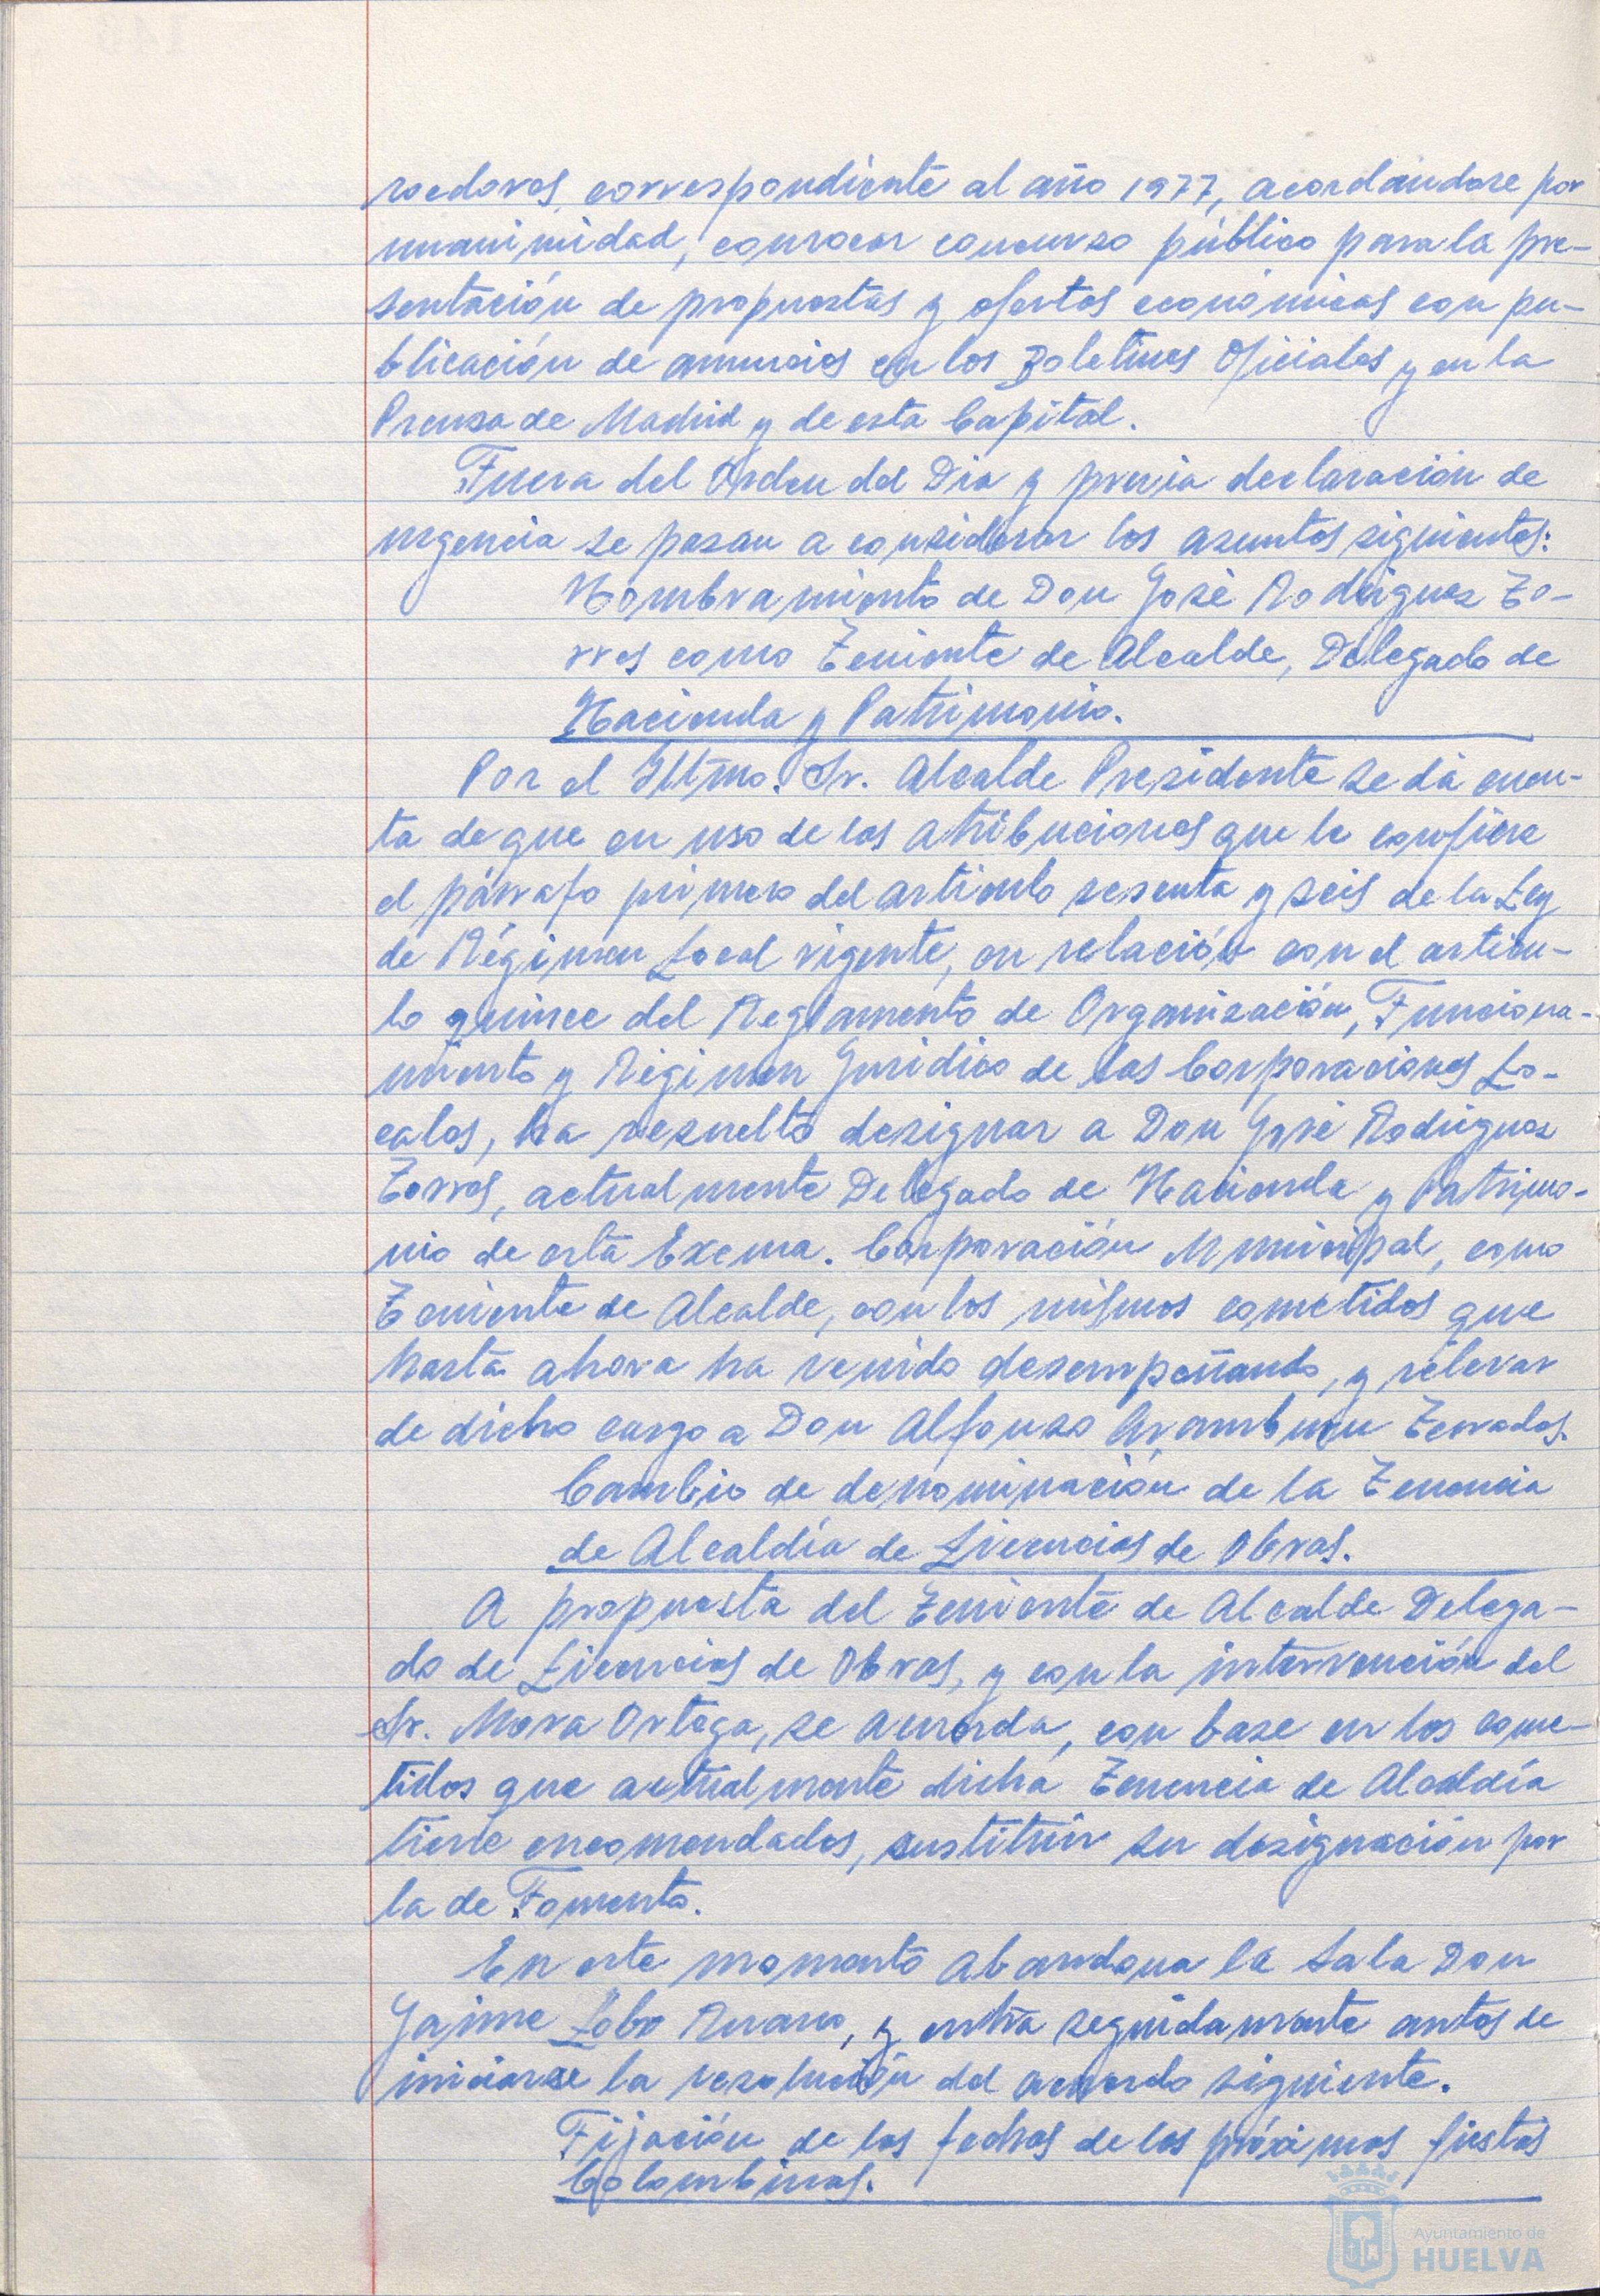 roedores, correspondiente al año 1977, acordándose por
unanimidad, convocar concurso público para la pre-
sentación de propuestas y ofertas económicas con pu-
blicación de anuncios en los Boletines Oficiales y en la
Prensa de Madrid y de esta Capital.
Fuera del Orden del Dia y previa declaración de
urgencia se pasan a considerar los asuntos siguientes:
Nombramiento de Don José Rodriguez To-
rres como Teniente de Alcalde, Delegado de
Hacienda y Patrimonio.
Por el Iltmo. Sr. Alcalde Presidente se dá cuen-
ta de que en uso de las atribuciones que le confiere
el párrafo primero del articulo sesenta y seis de la Ley
de Régimen Local vigente, en relación con el articu-
lo quince del Reglamento de Organización, Funciona-
miento y Régimen Juridico de las Corporaciones Lo-
cales, ha resuelto designar a Don José Rodriguez
Torres, actualmente Delegado de Hacienda y Patrimo-
nio de esta Excma. Corporación Municipal, como
Teniente de Alcalde, con los mismos cometidos que
hasta ahora ha venido desempeñando, y relevar
de dicho cargo a Don Alfonso Aramburu Terrades.
Cambio de denominación de la Tenencia
de Alcaldía de Licencias de Obras.
A propuesta del Teniente de Alcalde Delega-
do de Licencias de Obras, y con la intervención del
Sr. Mora Ortega, se acuerda, con base en los come-
tidos que actualmente dicha Tenencia de Alcaldía
tiene encomendados, sustituir su designación por
la de Fomento.
En este momento abandona la Sala Don
Jaime Lobo, y entra seguidamente antes de
iniciarse la resolución del acuerdo siguiente.
Fijación de las fechas de las próximas fiestas
Colombinas.
Ayuntamiento de
HUELVA